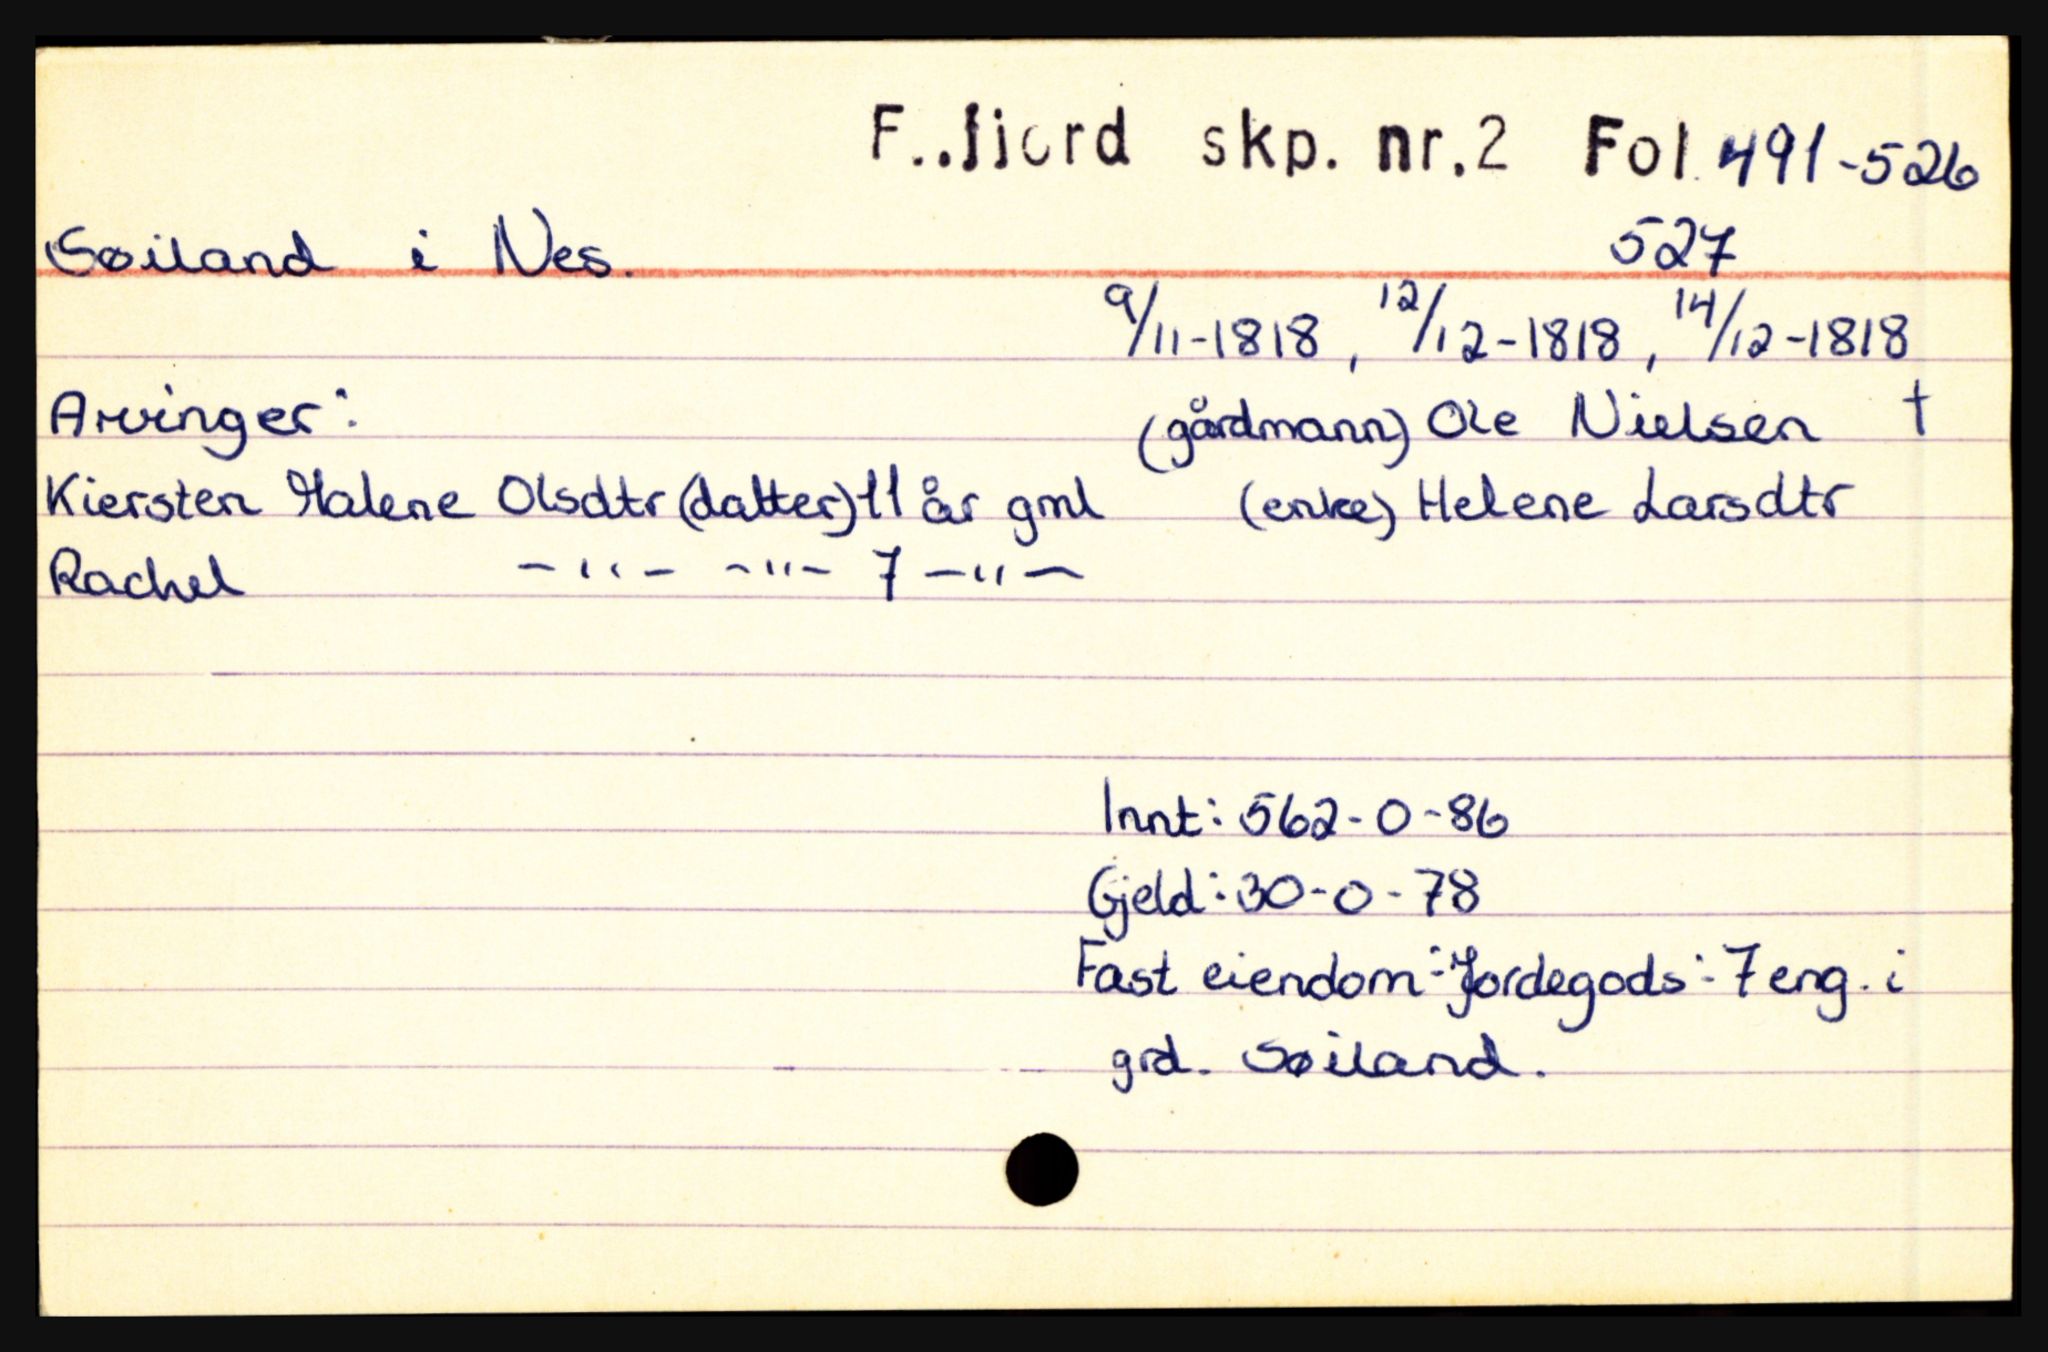 F..fjord skp. nr.2 Fol. 491-526
Søiland i Nes. 527
9/11-1818, 12/12-1818, 14/12-1818
Arvinger: (gårdmann) Ole Nielsen †
Kiersten Malene Olsdtr (datter) 11 år gml (enke) Helene Larsdtr
Rachel -"- -"- 7 -"-
Innt: 562-0-86
Gjeld: 30-0-78
Fast eiendom: Jordegods: 7 eng. i
grd. Søiland.